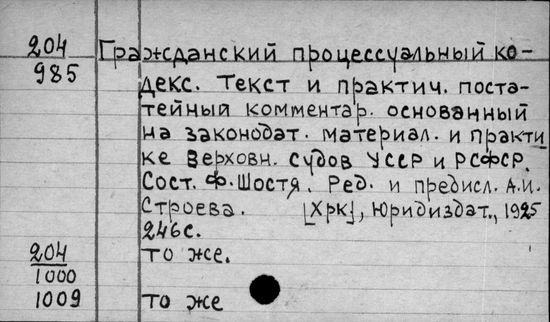 204 Гражданский процессуальный ко-
985 декс. Текст и практич. поста-
тейный комментар. основанный
на законодат. материал. и практи
ке Верховн. Судов УССР и РСФСР.
Сост. Ф. Шостя. Ред. и предисл. А.И.
Строева. [Хрк], Юридиздат., 1925
246с.
204 то же.
1000
1009 то же